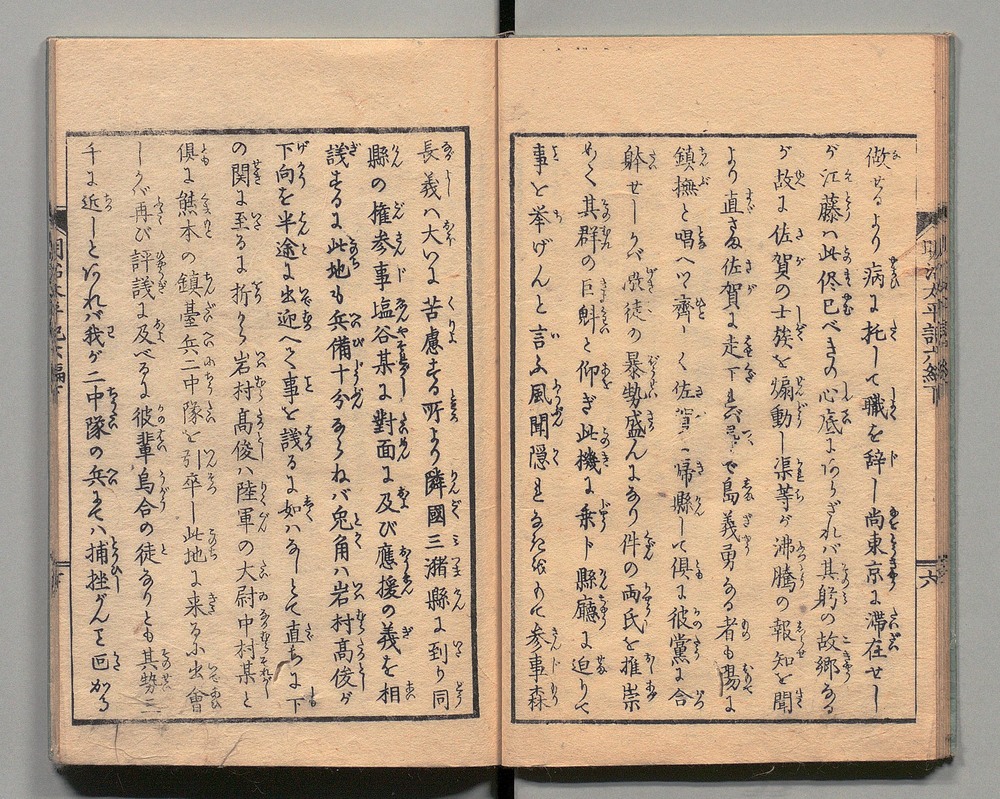 做せるより病に托して職を辞し尚東京に滞在せし
が江藤ハ此侭已べきの心底にあらざれバ其躬の故郷なる
が故に佐賀の士族を煽動し渠等が沸騰の報知を聞
より直さま佐賀に走下
島義勇なる者も陽に
鎮撫と唱へツヽ齊しく佐賀に帰縣して倶に彼黨に合
躰せしかバ徒の暴勢盛んなり件の両氏を推崇
めて其群の巨魁と仰ぎ此機に乗ト縣廳に迫りて
事と挙げんと言ふ風聞隠れなけれバ参事森
長義ハ大いに苦慮する所より隣國三潴縣に到り同
縣の権参事塩谷某に對面に及び應援の義を相
議するに此地も兵備十分ならねバ兎角ハ岩村髙俊が
下向を半途に出迎へて事を議るに如ハなしとて直ちに下
の関に至るに折から岩村髙俊ハ陸軍の大尉中村某と
倶に熊本の鎮臺兵二中隊を引卒し此地に来るに出會
しかバ再び評議に及べるに彼輩烏合の徒なりとも其勢三
千に近しとあれバ我が二中隊の兵にてハ捕挫がんこと叵かる
明治太平記六編下
六